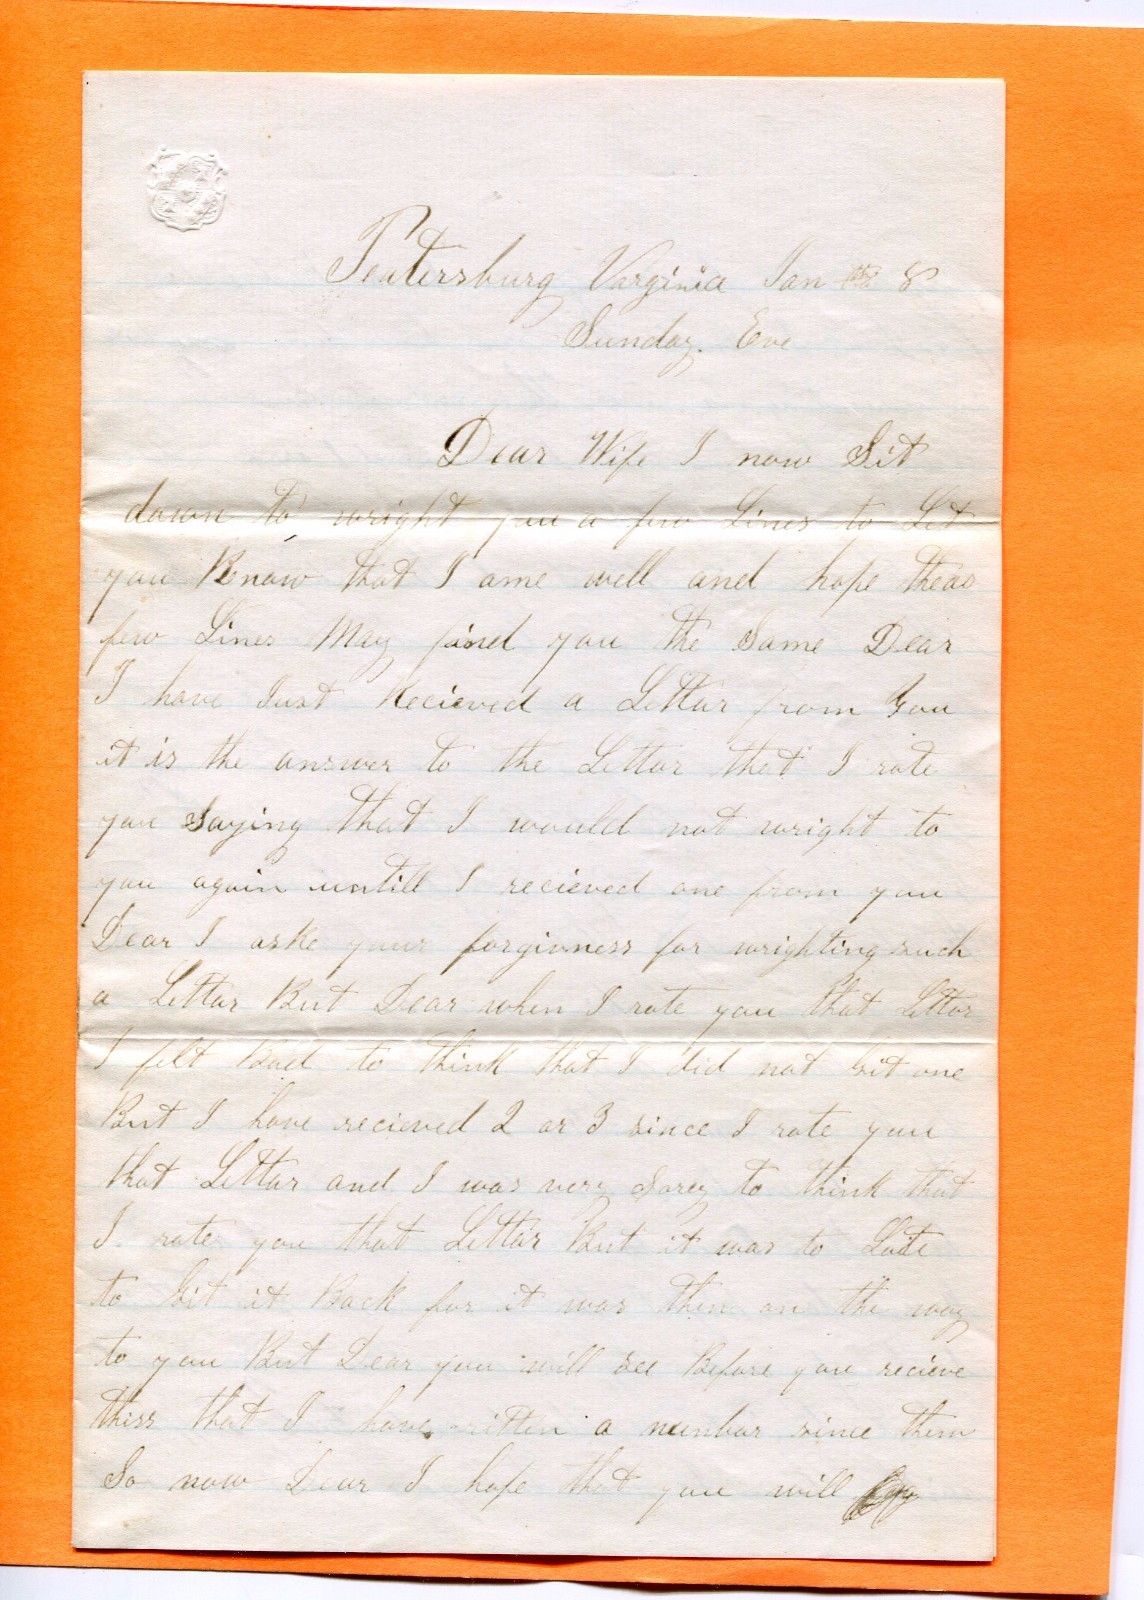 Peatersburg Varginia Jan 8
Sunday. Eve
Dear Wife I now Sit
down to wright you a few Lines to Let
you Know that I ame well and hope theas
few Lines May find you the Same Dear
I have Just Recieved a Lettar from You
it is the answer to the Lettar that I rote
you Saying that I would not wright to
you again untill I recieved one from you
Dear I aske your forgivness for wrighting such
a Lettar But Dear when I rote you that Lettar
I felt Bad to think that I did not Git one
But I have recieved 2 or 3 since I rote you
that Lettar and I was very Sorey to think that
I rote you that Lettar But it was to Late
to Git it Back for it was then on the way
to you But Dear you will see Before you recieve
thiss that I have ritten a numbar since then
So now Dear I hope that you will